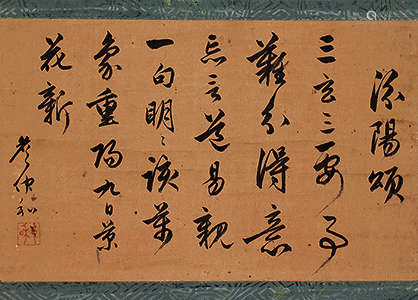 汾陽頌
三玄三要事
難分得意
忘言道易親
一句明〻該萬
象重陽九日菊
花新
仲和